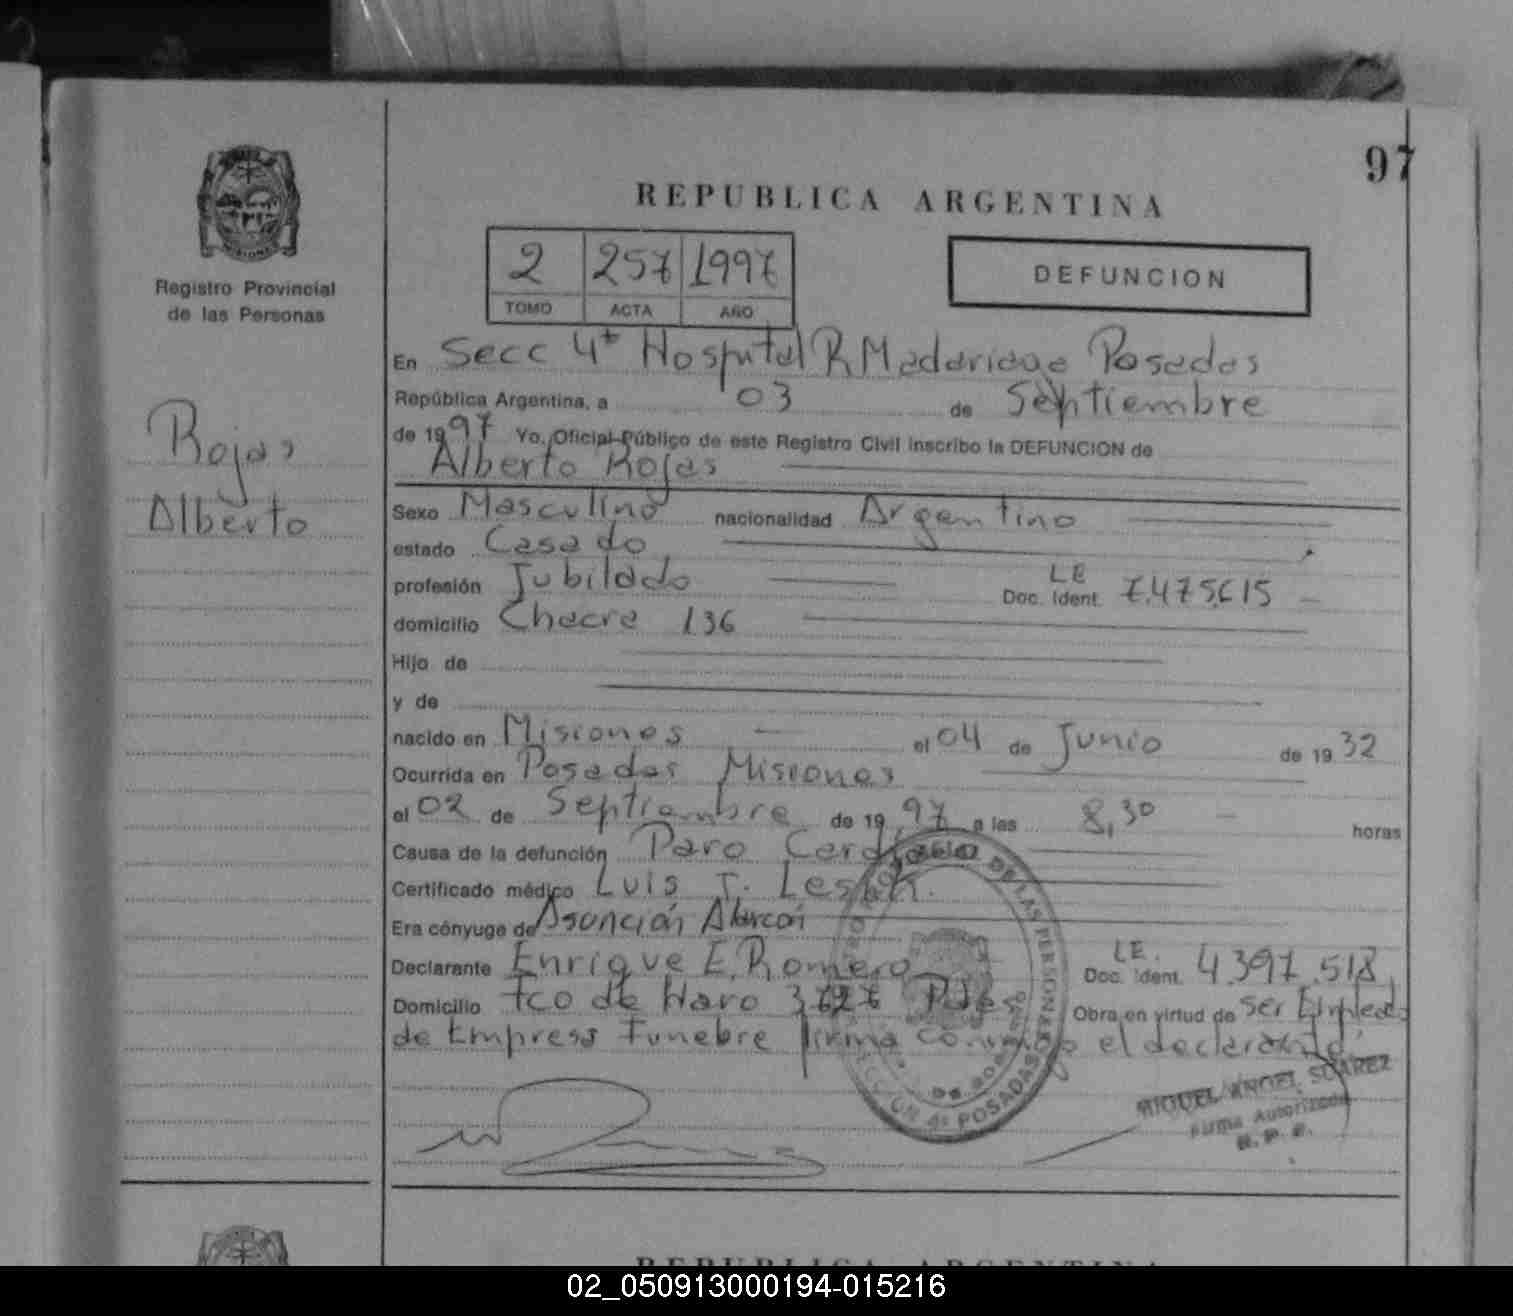 97
REPUBLICA ARGENTINA
2 257 1997
TOMO ACTA AÑO
DEFUNCION
Registro Provincial
de las Personas
Rojas
Alberto
En Secc 4ta Hospital R Madariaga Posadas
República Argentina, a 03 de Septiembre
de 1997 Yo, Oficial Público de este Registro Civil inscribo la DEFUNCION de
Alberto Rojas
Sexo Masculino nacionalidad Argentino
estado Casado
profesión Jubilado LE Doc. Ident. 7.475.615
domicilio Chacra 136
Hijo de
y de
nacido en Misiones el 04 de Junio de 1932
Ocurrida en Posadas Misiones
el 02 de Septiembre de 1997 a las 8,30 horas
Causa de la defunción Paro Cardiaco
Certificado médico Luis J.
Era cónyuge de Asunción Alarcón
Declarante Enrique E. Romero LE. Doc. Ident. 4.397.518
Domicilio Fco de Haro Pdas Obra en virtud de ser Empleado
de Empresa Funebre firma conmigo el declarante
DE LAS PERSONAS
SECCION 4ª POSADAS
MIGUEL ANGEL SUAREZ
Firma Autorizada
R. P. P.
REPUBLICA ARGENTINA
02_050913000194-015216